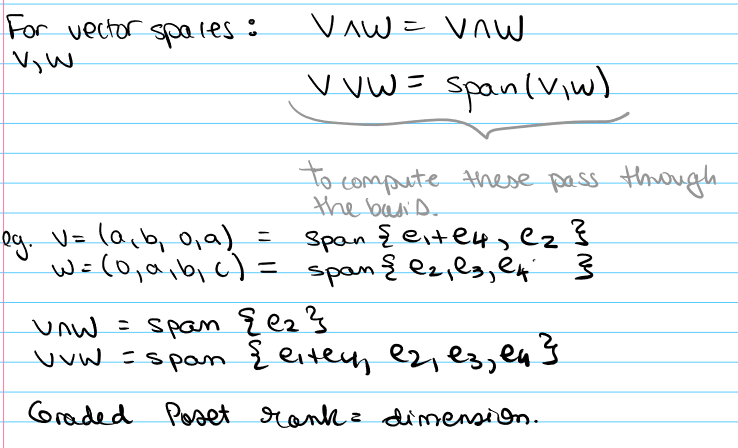 For vector spaces : V ∧ W = V ∩ W
V, W
V ∨ W = span(V, W)
to compute these pass through
the basis.
eg. V = (a, b, 0, a) = span { e1+e4, e2 }
W = (0, a, b, c) = span { e2, e3, e4 }
V ∩ W = span { e2 }
V ∨ W = span { e1+e4, e2, e3, e4 }
Graded Poset rank = dimension.